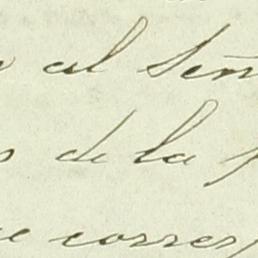 al Señ
de la
corres